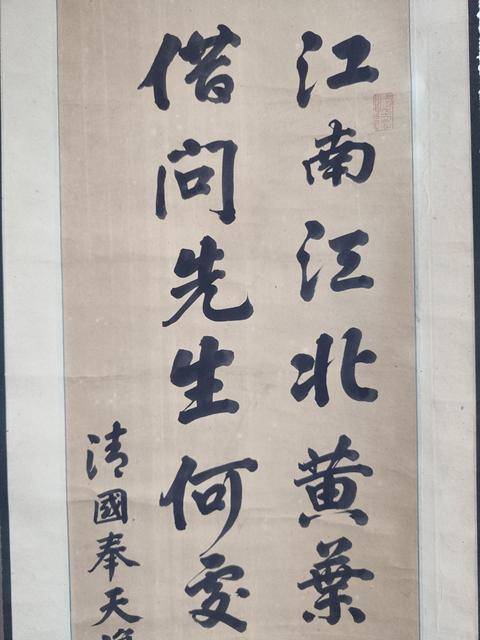 江南江北黄葉
借问先生何處
清國奉天